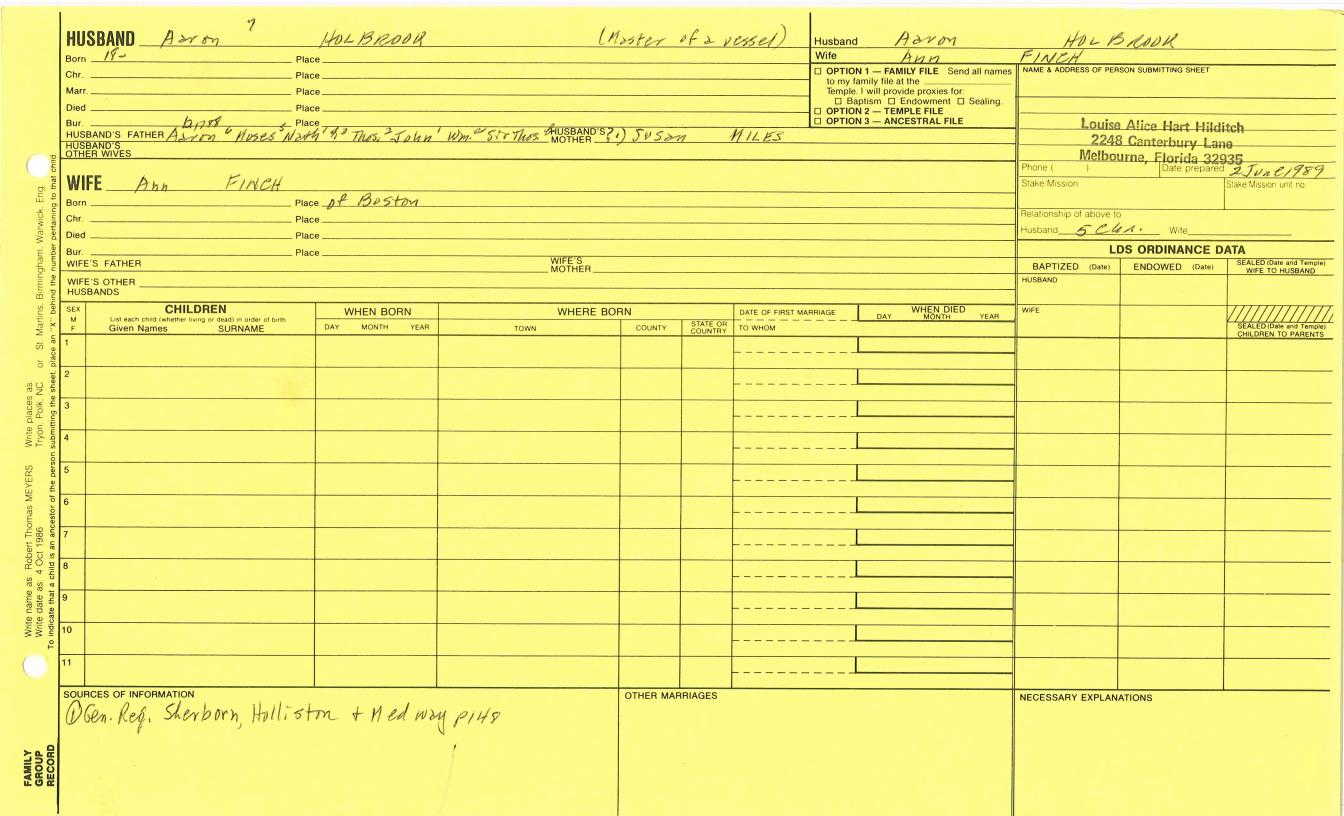 HUSBAND Aaron 7 HOLBROOK (Master of a vessel)
Born 18- Place
Chr. Place
Marr. Place
Died Place
Bur. Place
HUSBAND'S FATHER Aaron 6 Moses 5 Nath'l 4 3 Thos. 2 John 1 Wm. Sir Thos. HUSBAND'S MOTHER (?) Susan MILES
HUSBAND'S OTHER WIVES
WIFE Ann FINCH
Born Place of Boston
Chr. Place
Died Place
Bur. Place
WIFE'S FATHER WIFE'S MOTHER
WIFE'S OTHER HUSBANDS
Husband Aaron HOLBROOK
Wife Ann FINCH
☐ OPTION 1 — FAMILY FILE Send all names
to my family file at the
Temple. I will provide proxies for:
☐ Baptism ☐ Endowment ☐ Sealing.
☐ OPTION 2 — TEMPLE FILE
☐ OPTION 3 — ANCESTRAL FILE
NAME & ADDRESS OF PERSON SUBMITTING SHEET
Louise Alice Hart Hilditch
2248 Canterbury Lane
Melbourne, Florida 32935
Phone ( ) Date prepared 2 June 1989
Stake Mission Stake Mission unit no.
Relationship of above to
Husband 5 Chr. Wife
LDS ORDINANCE DATA
BAPTIZED (Date) ENDOWED (Date) SEALED (Date and Temple) WIFE TO HUSBAND
HUSBAND
WIFE
SEALED (Date and Temple) CHILDREN TO PARENTS
SEX M F
CHILDREN
List each child (whether living or dead) in order of birth
Given Names SURNAME
WHEN BORN
DAY MONTH YEAR
WHERE BORN
TOWN COUNTY STATE OR COUNTRY
DATE OF FIRST MARRIAGE
TO WHOM
WHEN DIED
DAY MONTH YEAR
1
2
3
4
5
6
7
8
9
10
11
SOURCES OF INFORMATION
① Gen. Reg. Sherborn, Holliston + Medway p148
OTHER MARRIAGES
NECESSARY EXPLANATIONS
Write name as: Robert Thomas MEYERS Write places as: Tryon, Polk, NC or St. Martins, Birmingham, Warwick, Eng.
Write date as: 4 Oct 1986
To indicate that a child is an ancestor of the person submitting the sheet, place an "X" behind the number pertaining to that child.
FAMILY
GROUP
RECORD